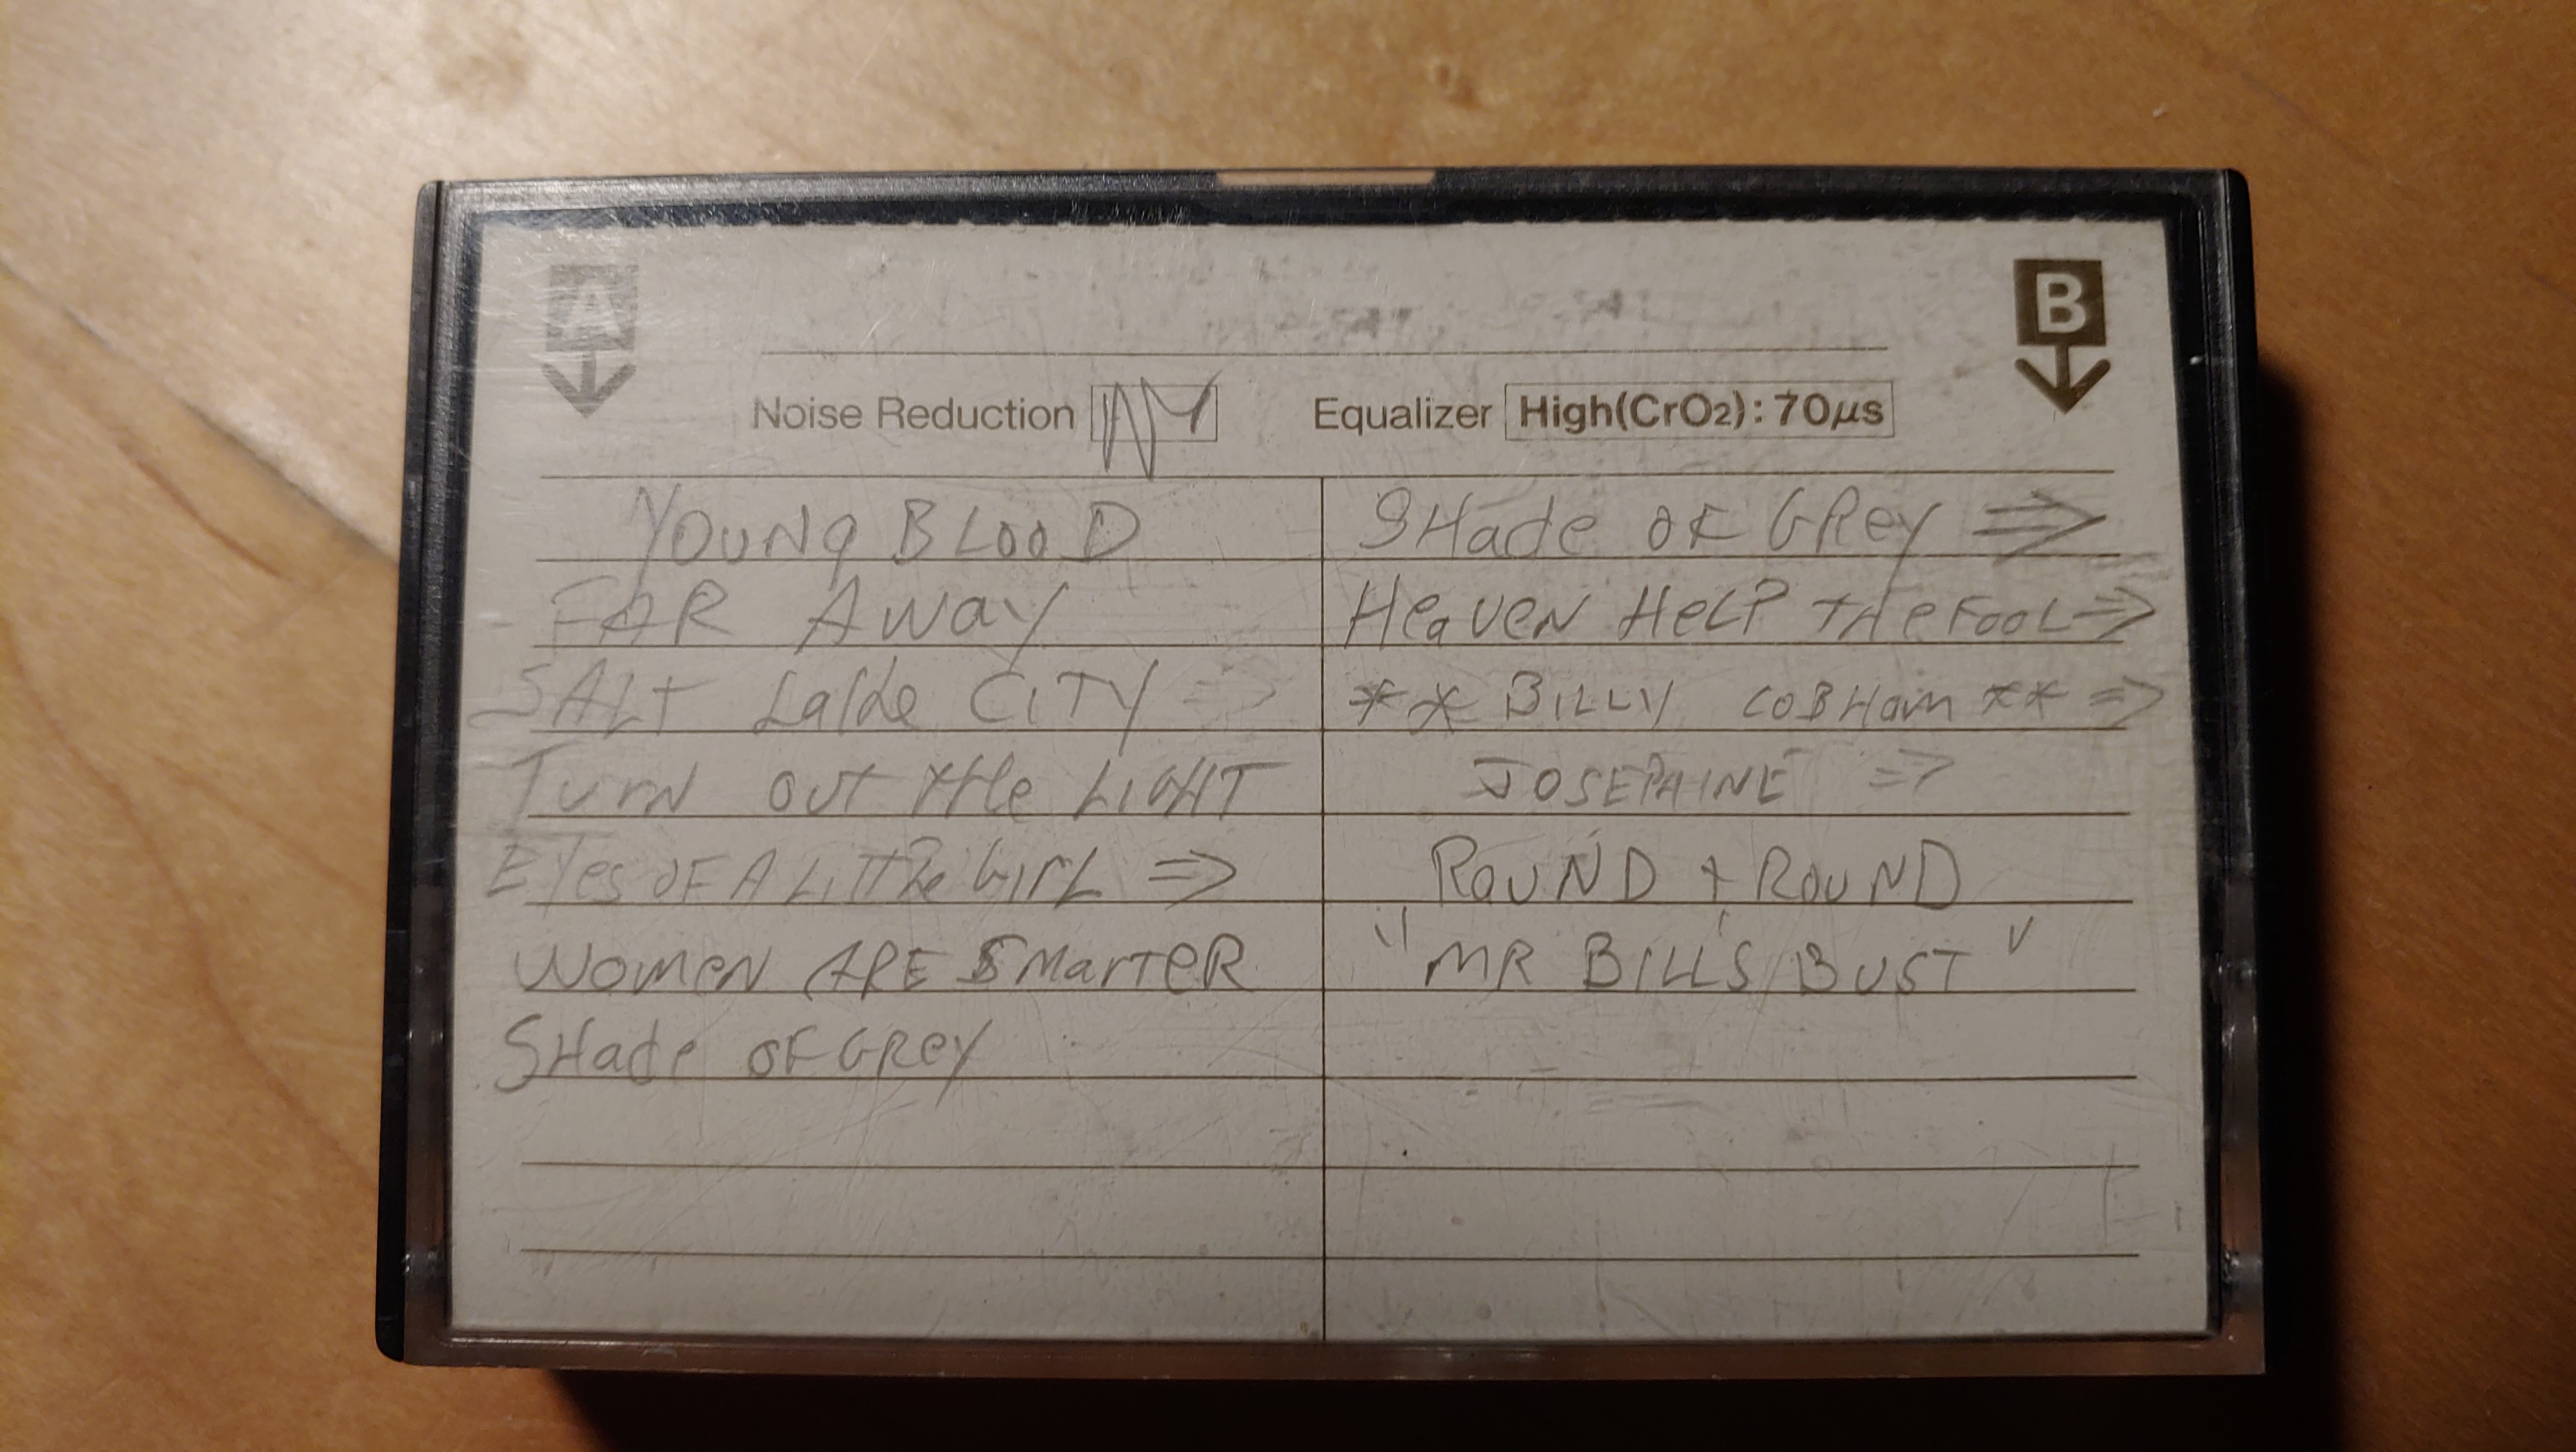 A
B
Noise Reduction NY Equalizer High(CrO2): 70μs
YOUNG BLOOD
FAR AWAY
SALT LaKe CITY ⇒
TurN out tHe LIGHT
EYes OF A LiTTle GirL ⇒
WOMeN ARE SMarTeR
SHade OF GRey
SHade OF GRey ⇒
HeaVeN HeLP THe FOOL ⇒
** BILLY COBHam ** ⇒
JOSEPHINE ⇒
ROUND + ROUND
"MR BILL'S BUST"